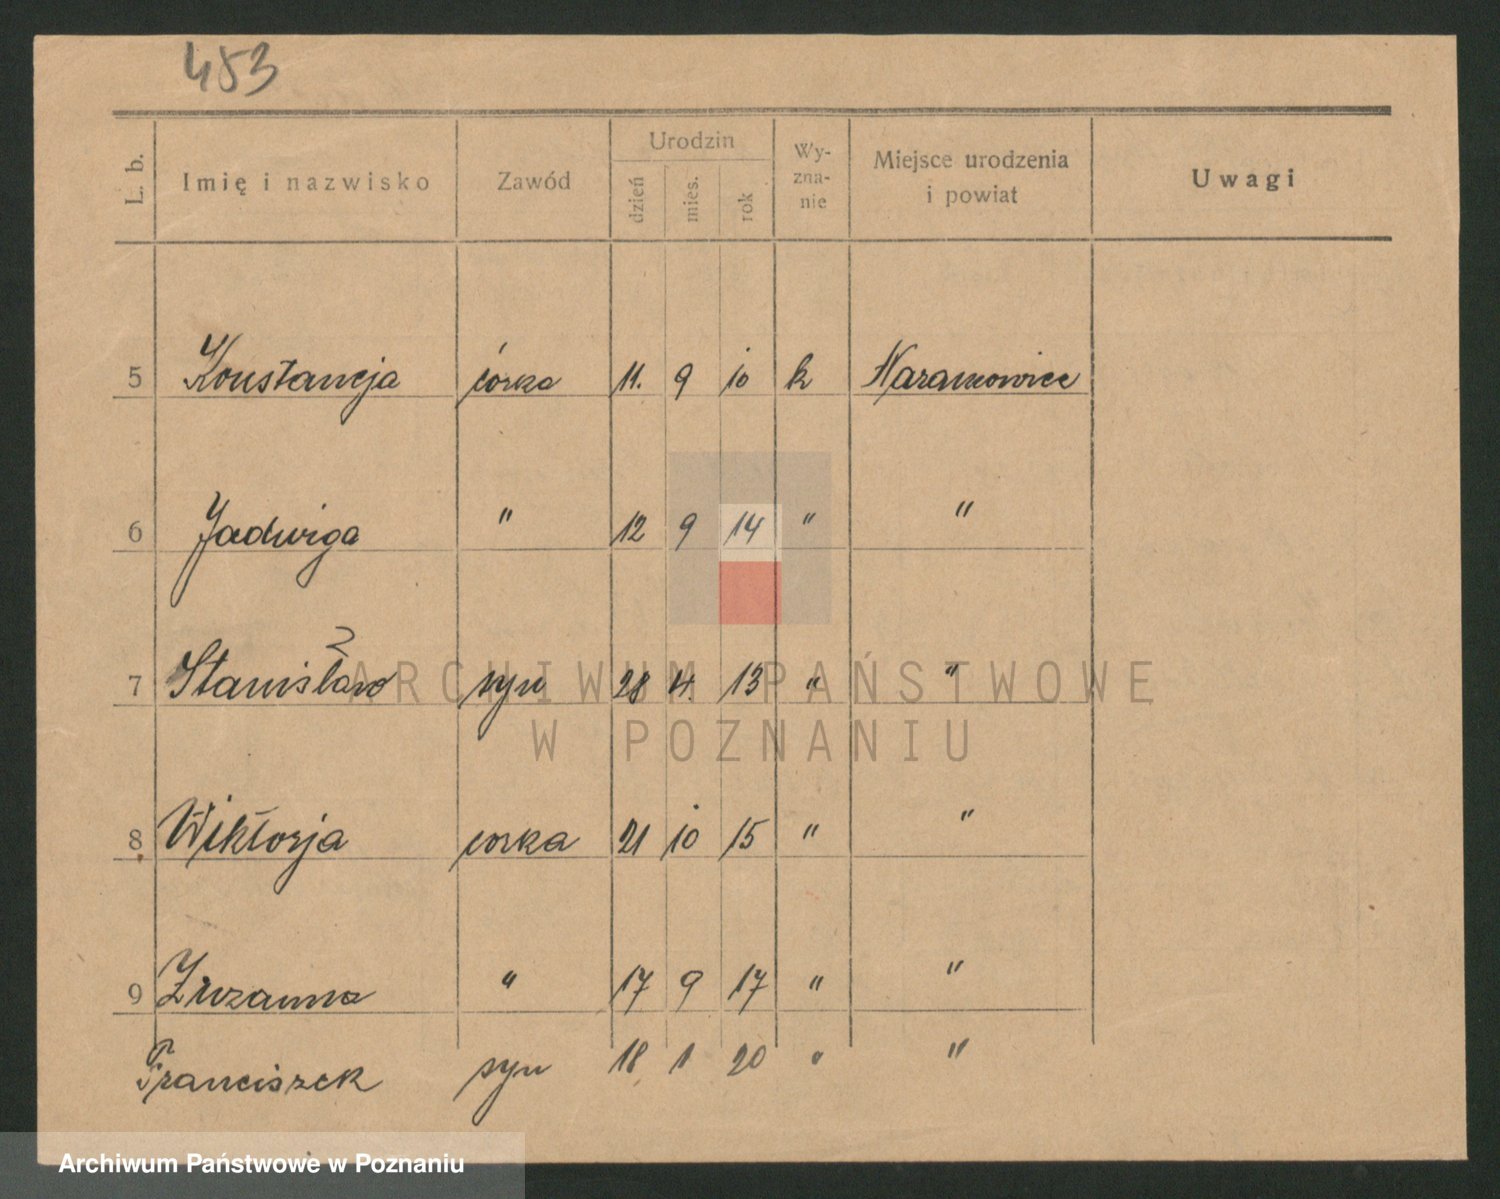 453
L. b. Imię i nazwisko Zawód Urodzin dzień mies. rok Wy-zna-nie Miejsce urodzenia i powiat Uwagi
5 Konstancja córka 11. 9 10 k Naramowice
6 Jadwiga " 12 9 14 " "
7 Stanisław syn 28 4. 13 " "
8 Wiktorja corka 21 10 15 " "
9 Zuzanna " 17 9 17 " "
Franciszek syn 18 1 20 " "
ARCHIWUM PAŃSTWOWE
W POZNANIU
Archiwum Państwowe w Poznaniu